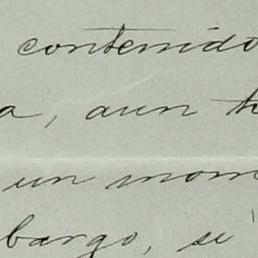 contenido
a, aun h
un mom
bargo, se